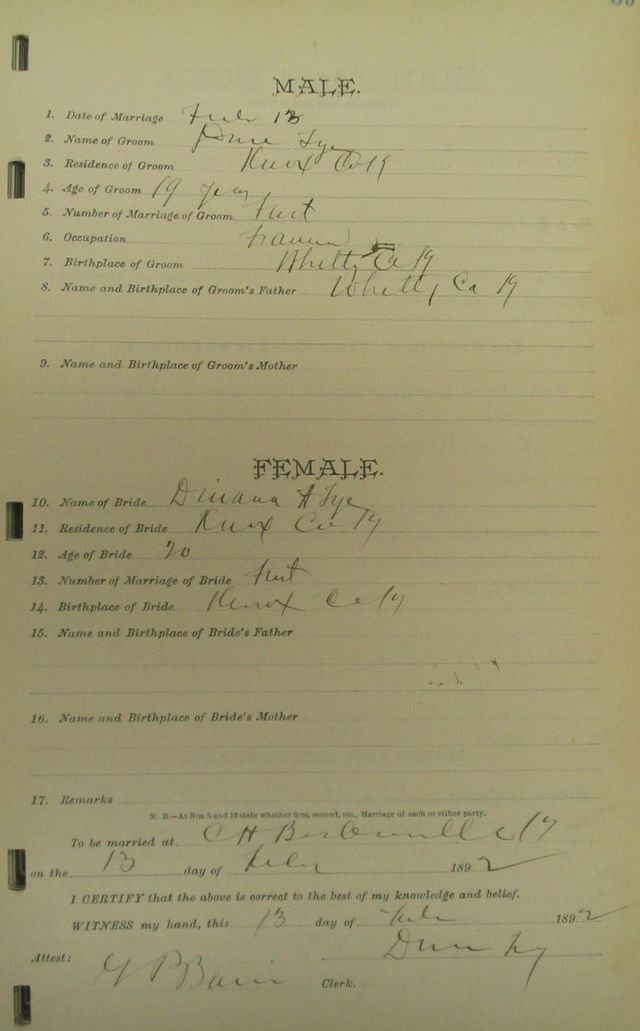 MALE.
1. Date of Marriage Feb 13
2. Name of Groom Tye
3. Residence of Groom Knox Co Ky
4. Age of Groom 19 years
5. Number of Marriage of Groom First
6. Occupation
7. Birthplace of Groom Whitly Co Ky
8. Name and Birthplace of Groom's Father Whitly Co Ky
9. Name and Birthplace of Groom's Mother
FEMALE.
10. Name of Bride A Tye
11. Residence of Bride Knox Co Ky
12. Age of Bride 20
13. Number of Marriage of Bride First
14. Birthplace of Bride Knox Co Ky
15. Name and Birthplace of Bride's Father
16. Name and Birthplace of Bride's Mother
17. Remarks
N. B.—At Nos. 5 and 13 state whether first, second, etc., Marriage of each or either party.
To be married at C H Barbourville Ky
on the 13 day of Feby 1892
I CERTIFY that the above is correct to the best of my knowledge and belief.
WITNESS my hand, this 13 day of Feby 1892
Attest:
Clerk.